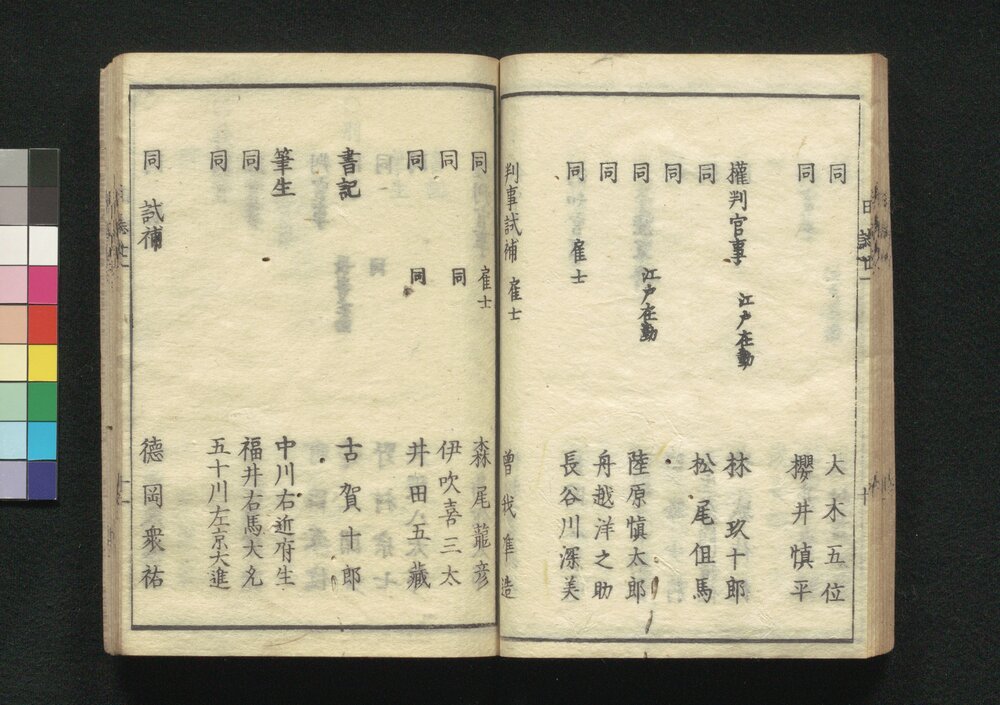 同 大木五位
同 櫻井慎平
權判官事 江戸在勤 林玖十郎
同 松尾但馬
同
同 江戸在勤 陸原慎太郎
同 舟越洋之助
同 雇士 長谷川深美
判事試補 雇士 曽我準造
同 雇士 森尾龍彦
同 同 伊吹喜三太
同 同 井田五藏
書記 古賀十郎
筆生 中川右近府生
同 福井右馬大允
同 五十川左京大進
同 試補 德岡衆祐